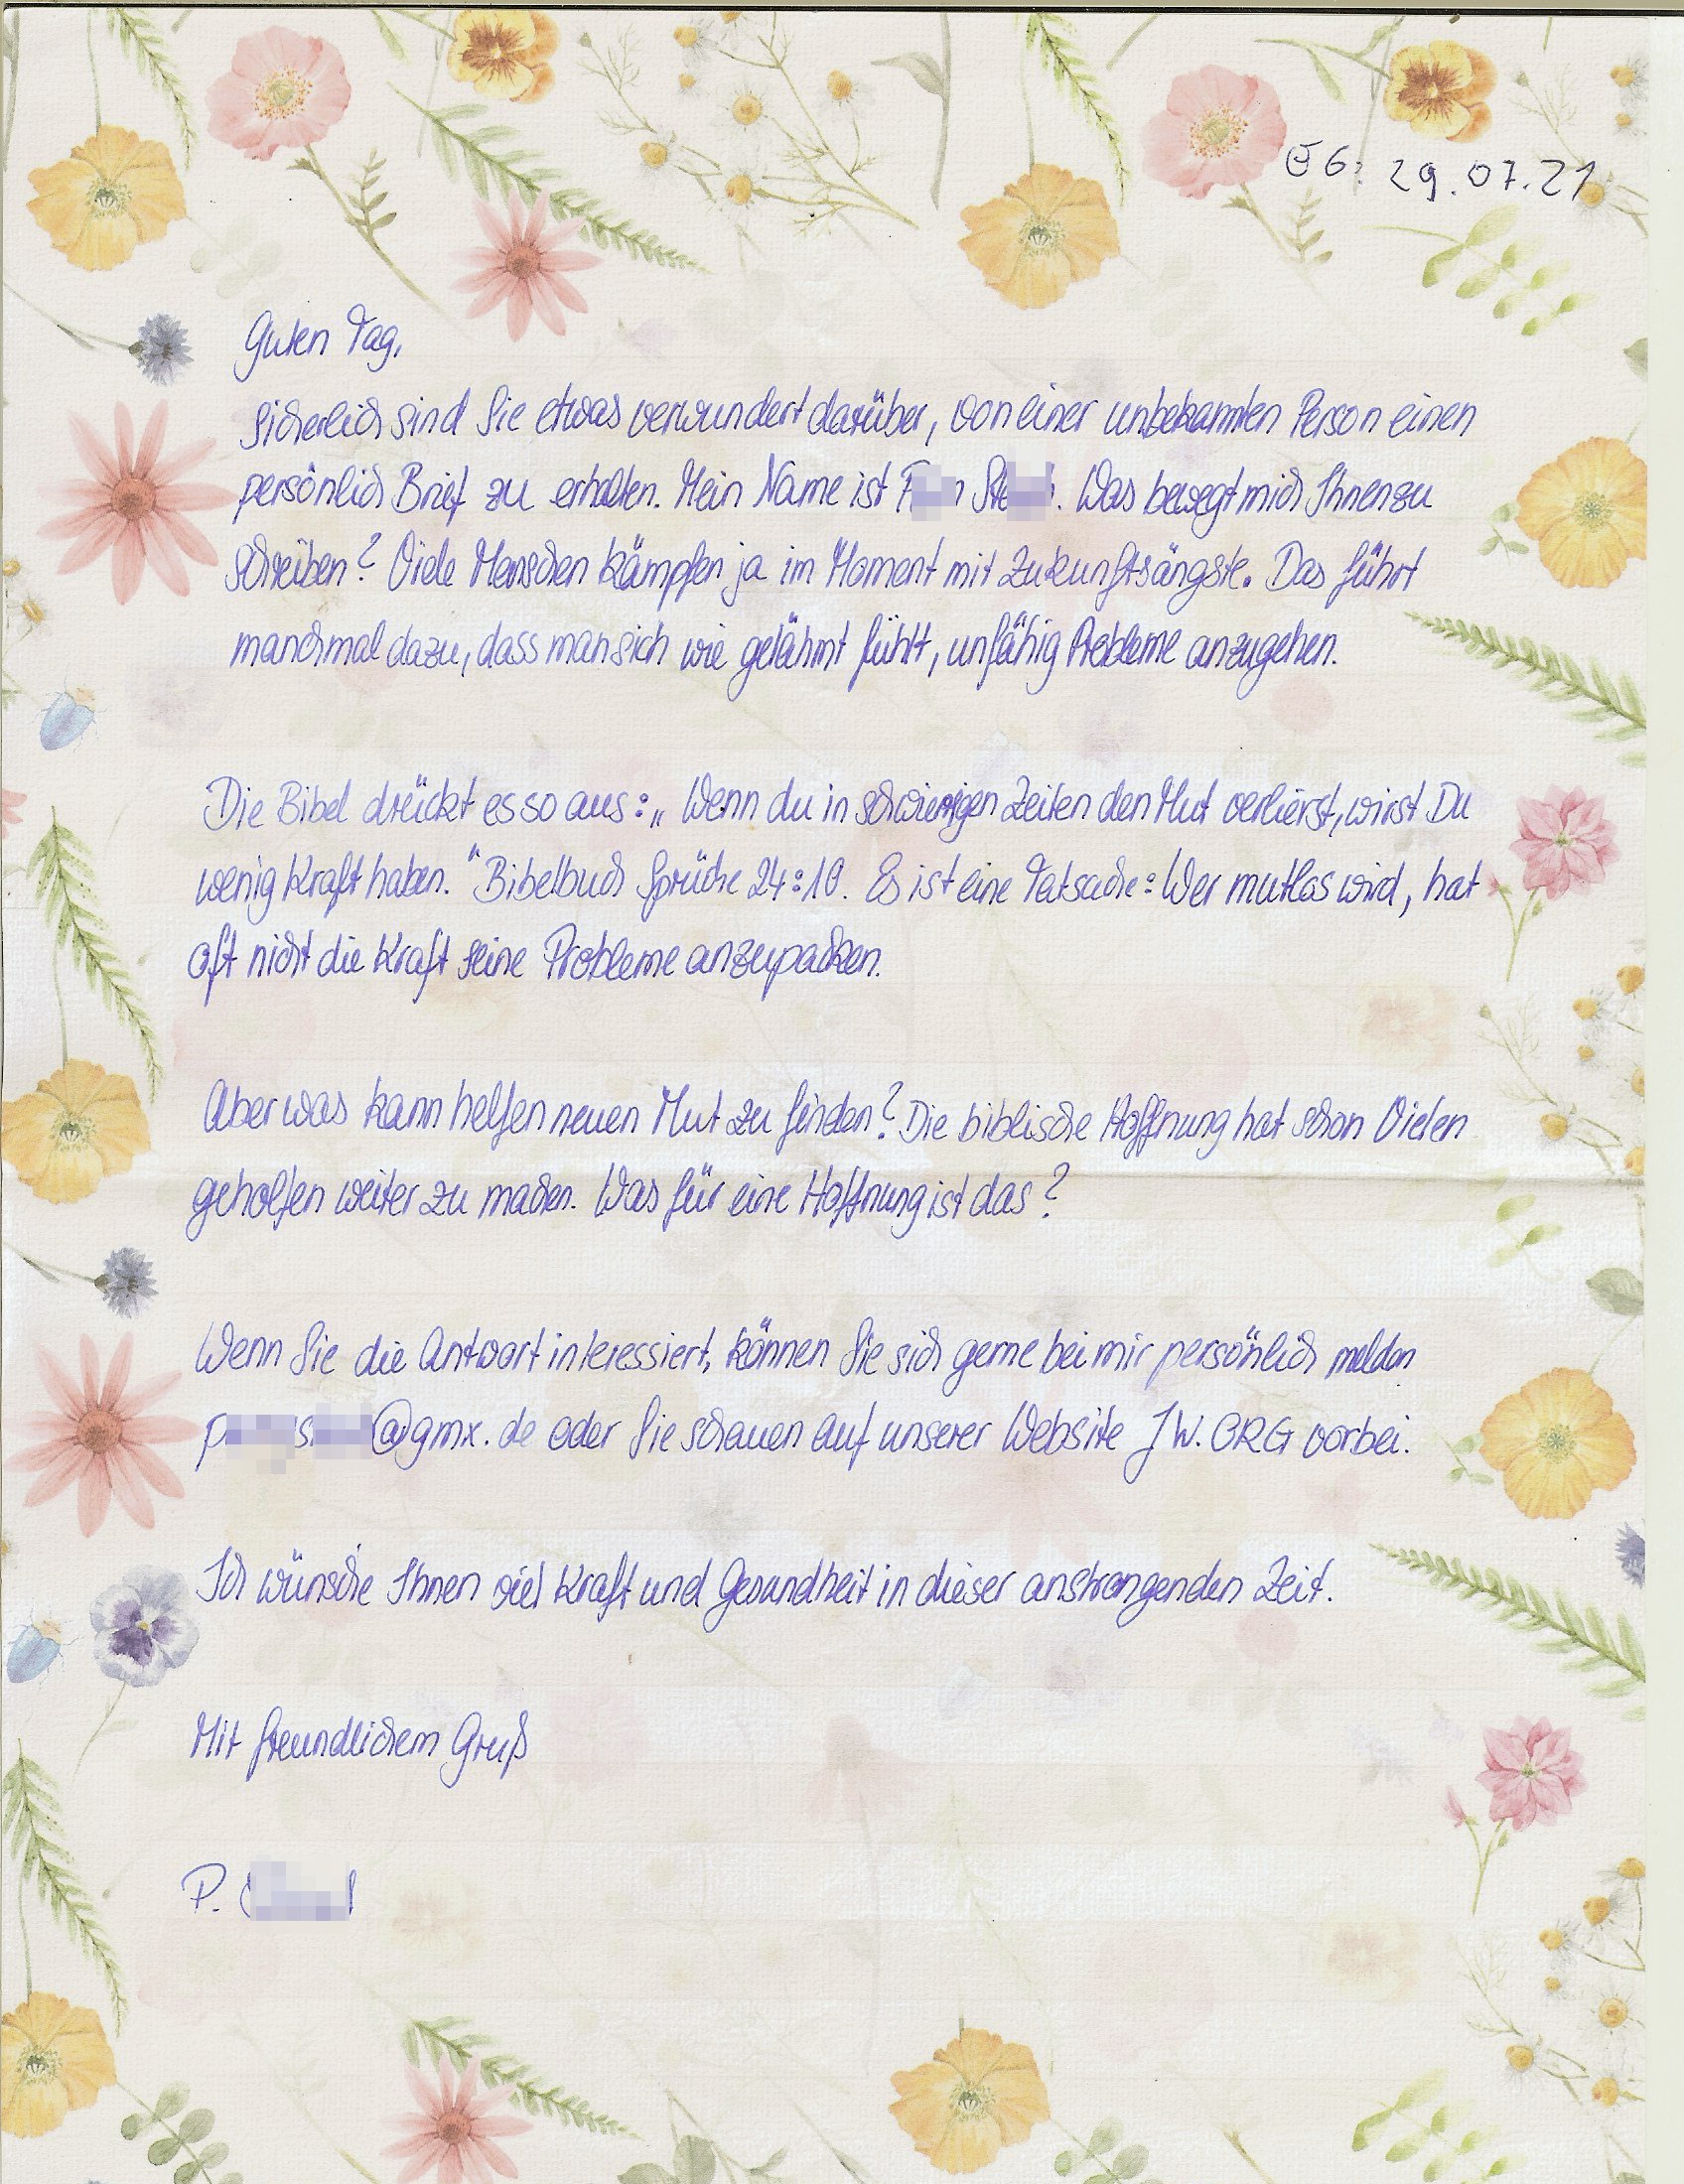 EG: 29.07.21
Guten Tag,
Sicherlich sind Sie etwas verwundert darüber, von einer unbekannten Person einen
persönlich Brief zu erhalten. Mein Name ist. Was bewegt mich Ihnen zu
schreiben? Viele Menschen kämpfen ja im Moment mit Zukunftsängste. Das führt
manchmal dazu, dass man sich wie gelähmt fühlt, unfähig Probleme anzugehen.
Die Bibel drückt es so aus: „Wenn du in schwierigen Zeiten den Mut verlierst, wirst Du
wenig Kraft haben." Bibelbuch Sprüche 24:10. Es ist eine Tatsache: Wer mutlos wird, hat
oft nicht die Kraft seine Probleme anzupacken.
Aber was kann helfen neuen Mut zu finden? Die biblische Hoffnung hat schon Vielen
geholfen weiter zu machen. Was für eine Hoffnung ist das?
Wenn Sie die Antwort interessiert, können Sie sich gerne bei mir persönlich melden
@gmx.de oder Sie schauen auf unserer Website JW.ORG vorbei.
Ich wünsche Ihnen viel Kraft und Gesundheit in dieser anstrengenden Zeit.
Mit freundlichem Gruß
P.